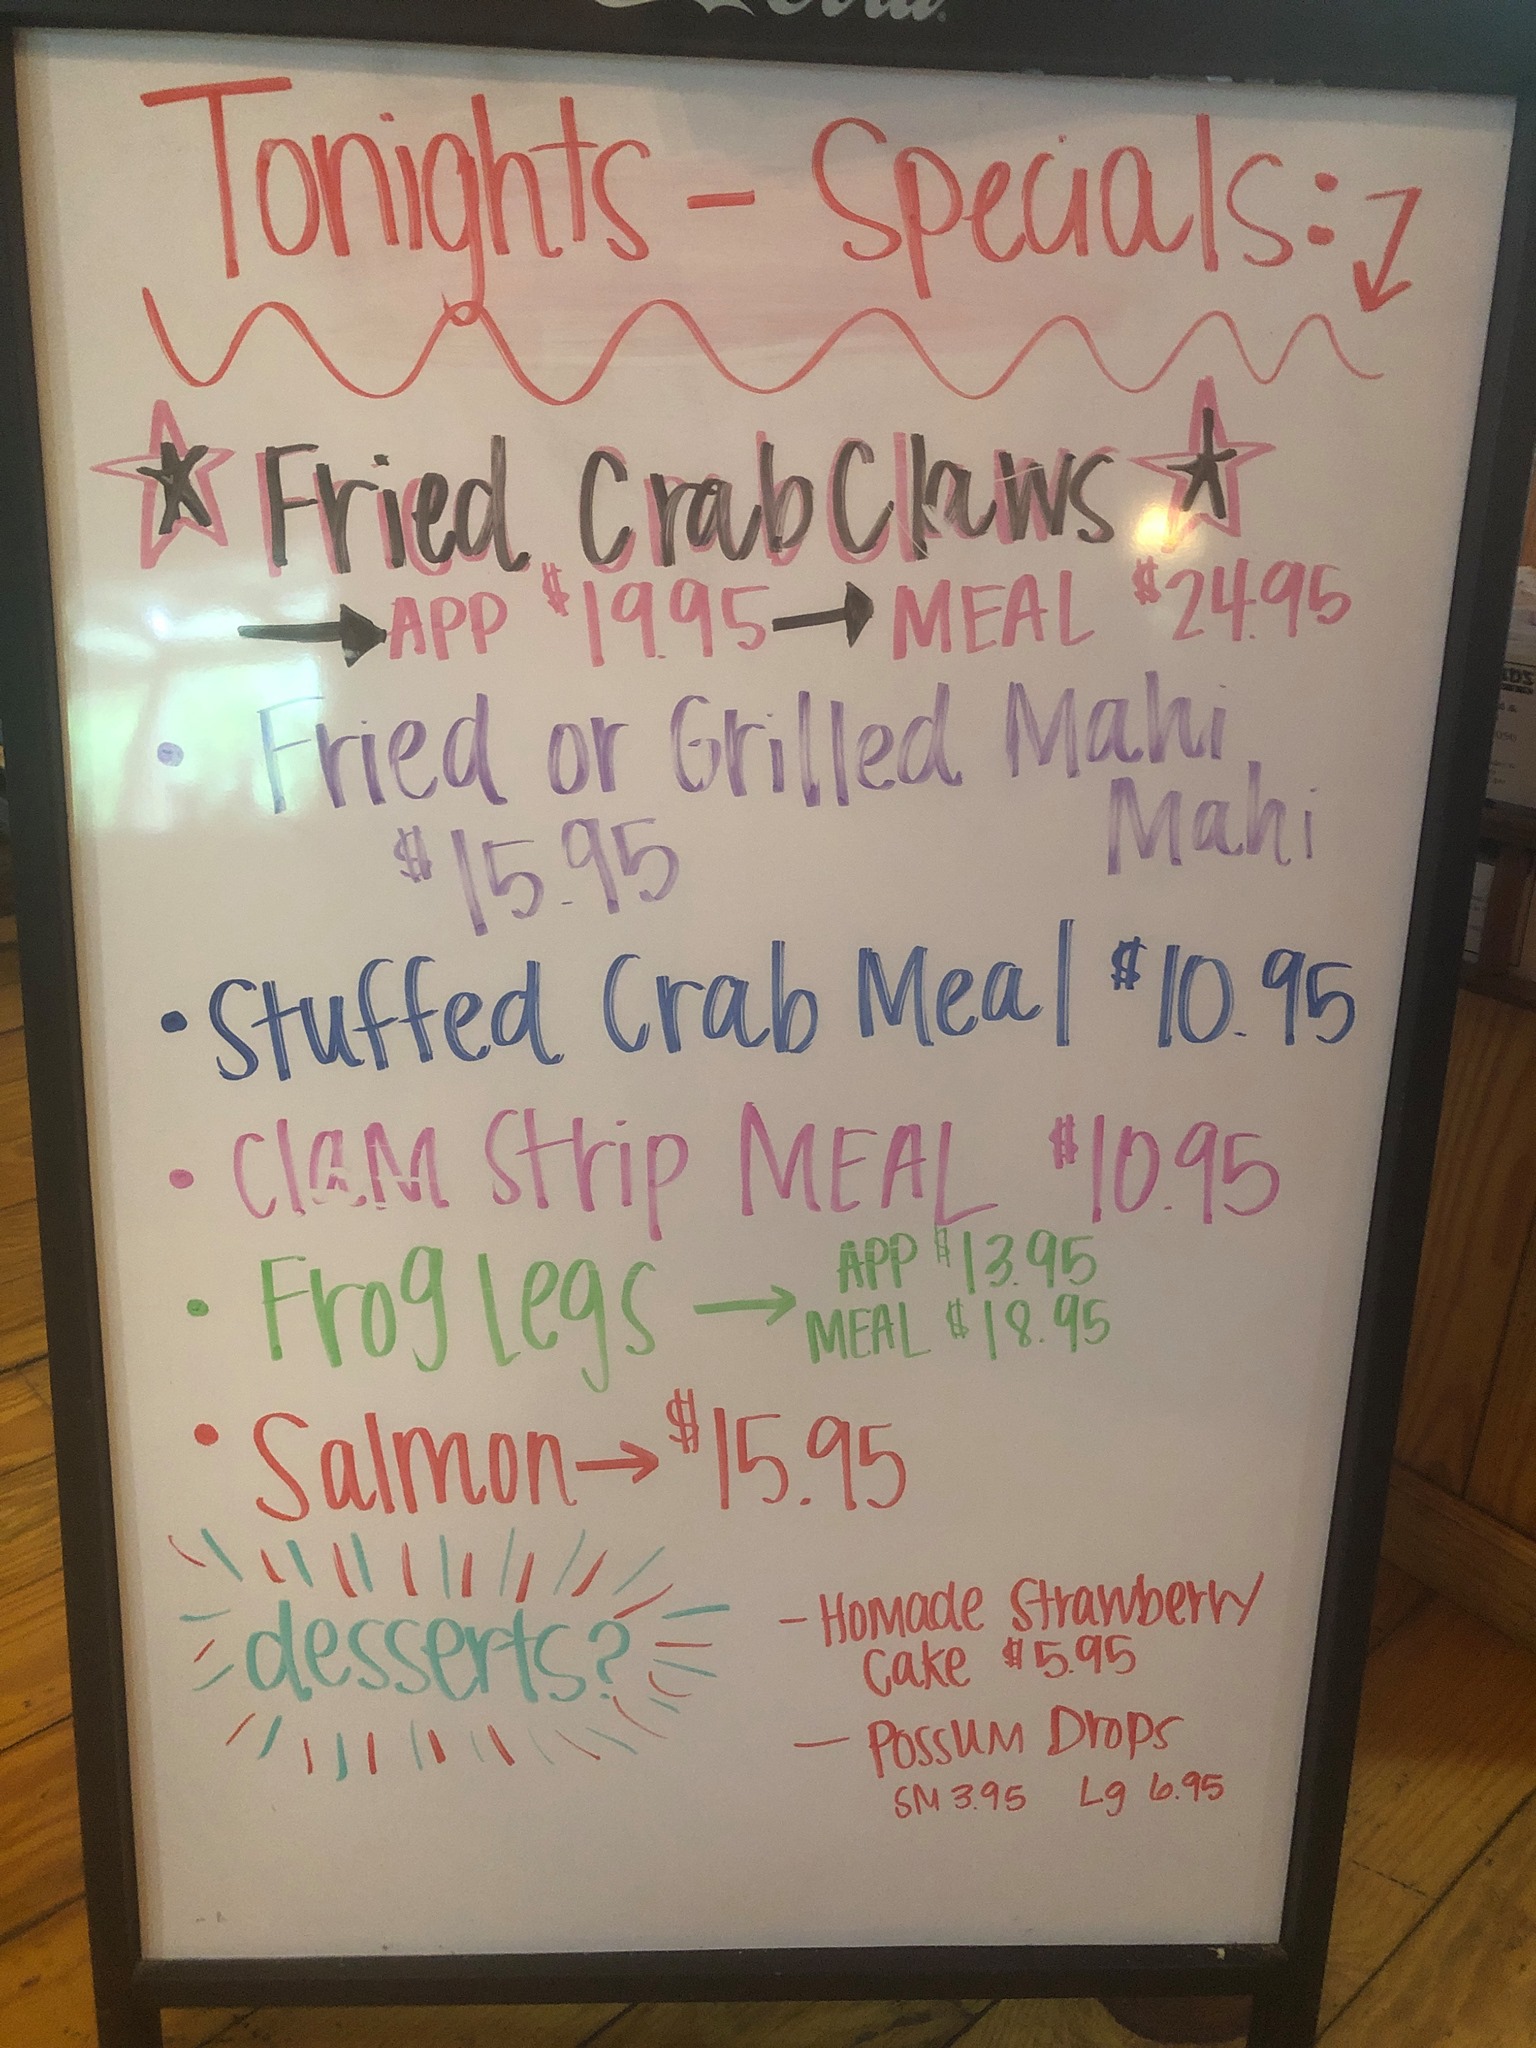 Cola
Tonights - Specials:
Fried Crab Claws
APP $19.95 → MEAL $24.95
• Fried or Grilled Mahi
Mahi
$15.95
• Stuffed Crab Meal $10.95
• Clam Strip MEAL $10.95
• Frog Legs → APP $13.95
MEAL $18.95
• Salmon → $15.95
desserts?
- Homade Strawberry
Cake $5.95
- Possum Drops
SM 3.95 Lg 6.95